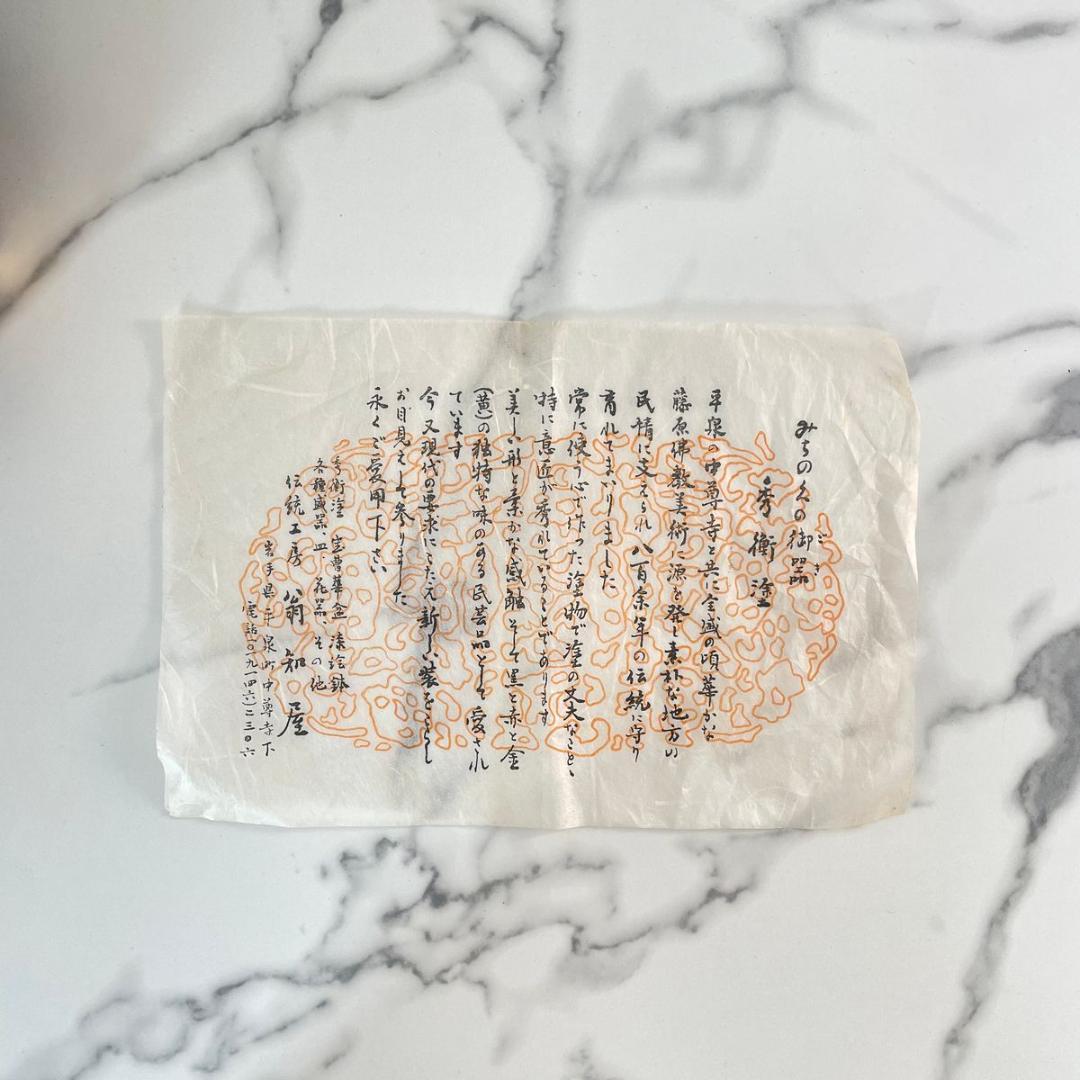 みちのくの御器
ごき
秀衡塗
平泉の中尊寺と共に全盛の頃華かな
藤原佛教美術に源を発し素朴な地方の
民情に支えられ八百余年の伝統に守り
育れてまいりました
常に使う心で作った塗物で塗の丈夫なこと、
特に意匠が秀れていることであります
美しい形と豊かな感触そして黒と赤と金
(黄)の独特な味のある民芸品として愛され
ています
今又現代の要求にこたえ新しい装をこらし
お目見えして参りました
永くご愛用下さい
秀衡塗 宝曹華盆 漆絵鉢
各種盛器、皿、花器、その他
伝統工房 翁知屋
岩手県平泉町中尊寺下
電話(〇一九一四六)二三〇六